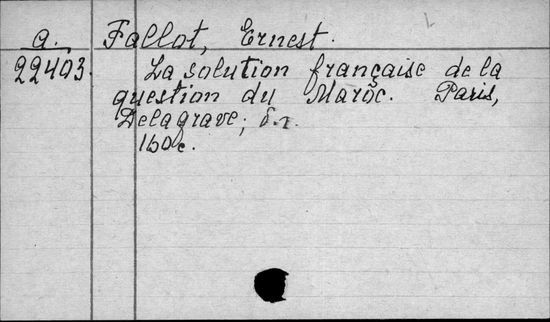 a. Fallot, Ernest.
22403. La solution française de la
question du Maroc. Paris,
Delagrave;
160c.